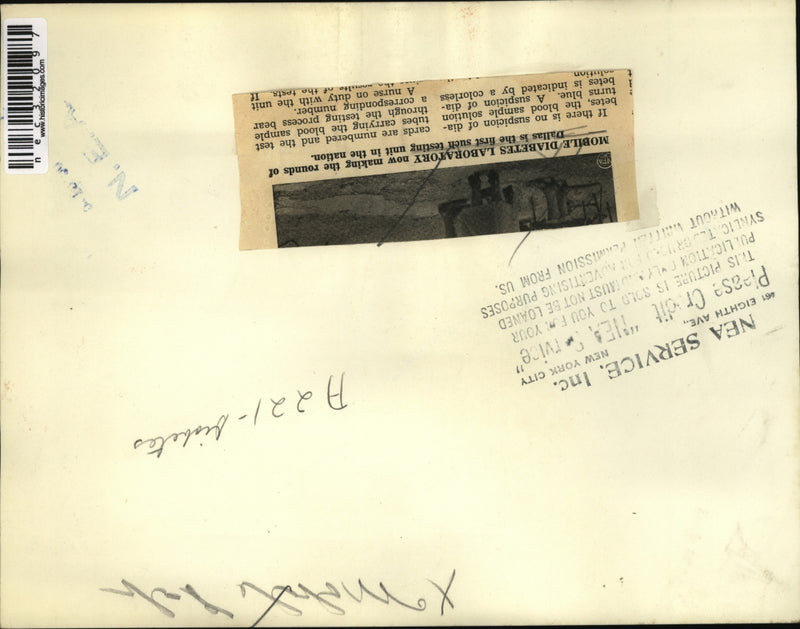 MOBILE DIABETES LABORATORY now making the rounds of
Dallas is the first such testing unit in the nation.
If there is no suspicion of dia-
betes, the blood sample solution
turns blue. A suspicion of dia-
betes is indicated by a colorless
solution
cards are numbered and the test
tubes carrying the blood sample
through the testing process bear
a corresponding number.
A nurse on duty with the unit
the results of the tests. If
NEA SERVICE, Inc.
461 EIGHTH AVE., NEW YORK CITY
Please Credit "NEA Service"
THIS PICTURE IS SOLD TO YOU FOR YOUR
PUBLICATION ONLY AND MUST NOT BE LOANED
SYNDICATED OR USED FOR ADVERTISING PURPOSES
WITHOUT WRITTEN PERMISSION FROM US.
N.E.A.
A221-Diabetes
X
www.historicimages.com
nec32097
NEA